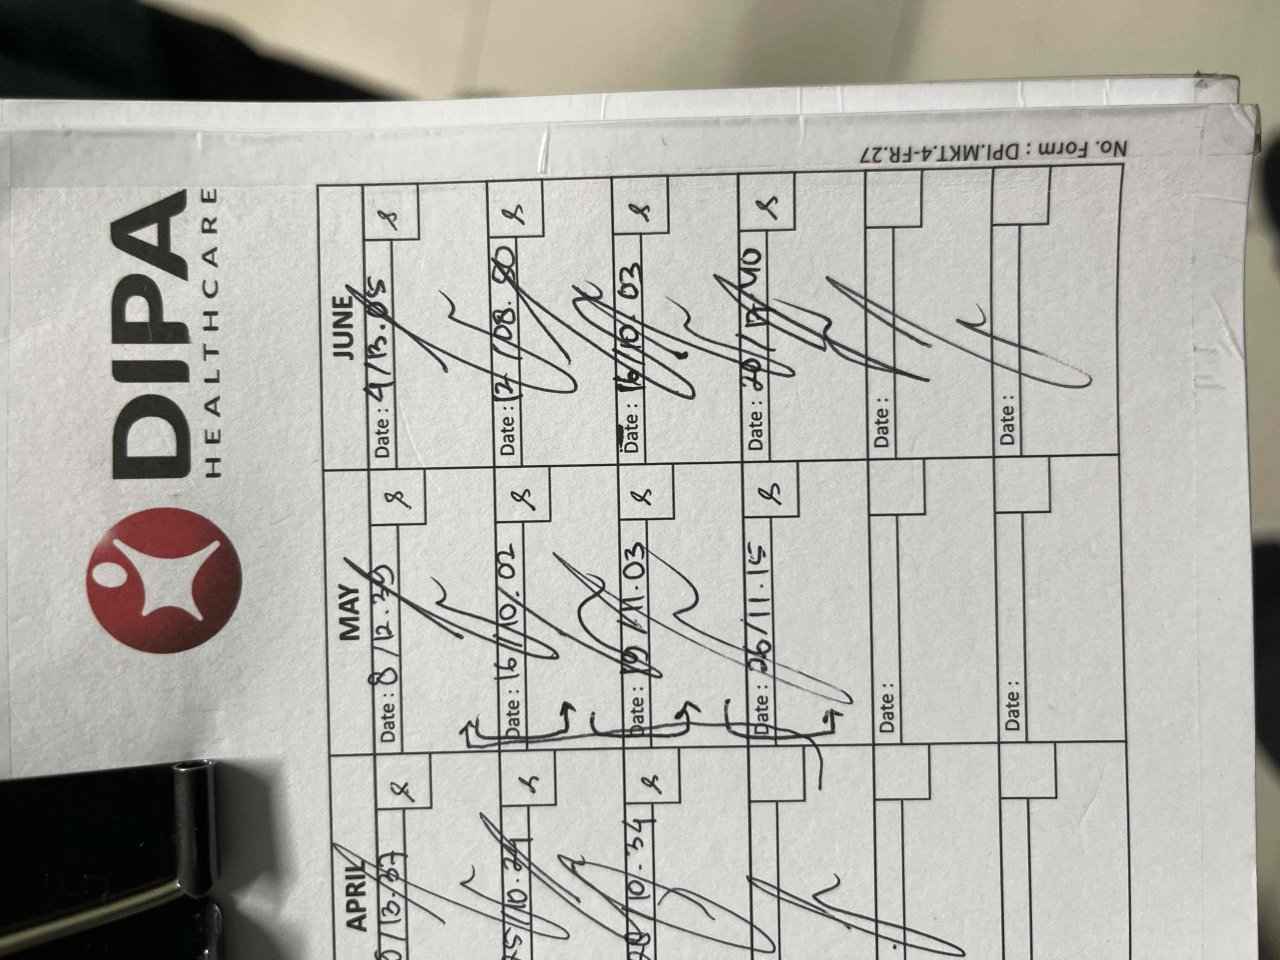 DIPA
HEALTHCARE
No. Form : DPI.MKT.4-FR.27
APRIL
MAY
JUNE
Date : 8 /12.39
Date : 4/13.05
Date : 16/10.02
Date : 12 /08.50
10.34
Date : 19 /11.03
Date : 16/10.03
Date : 26/11.15
Date : 20/17.40
Date :
Date :
Date :
Date :